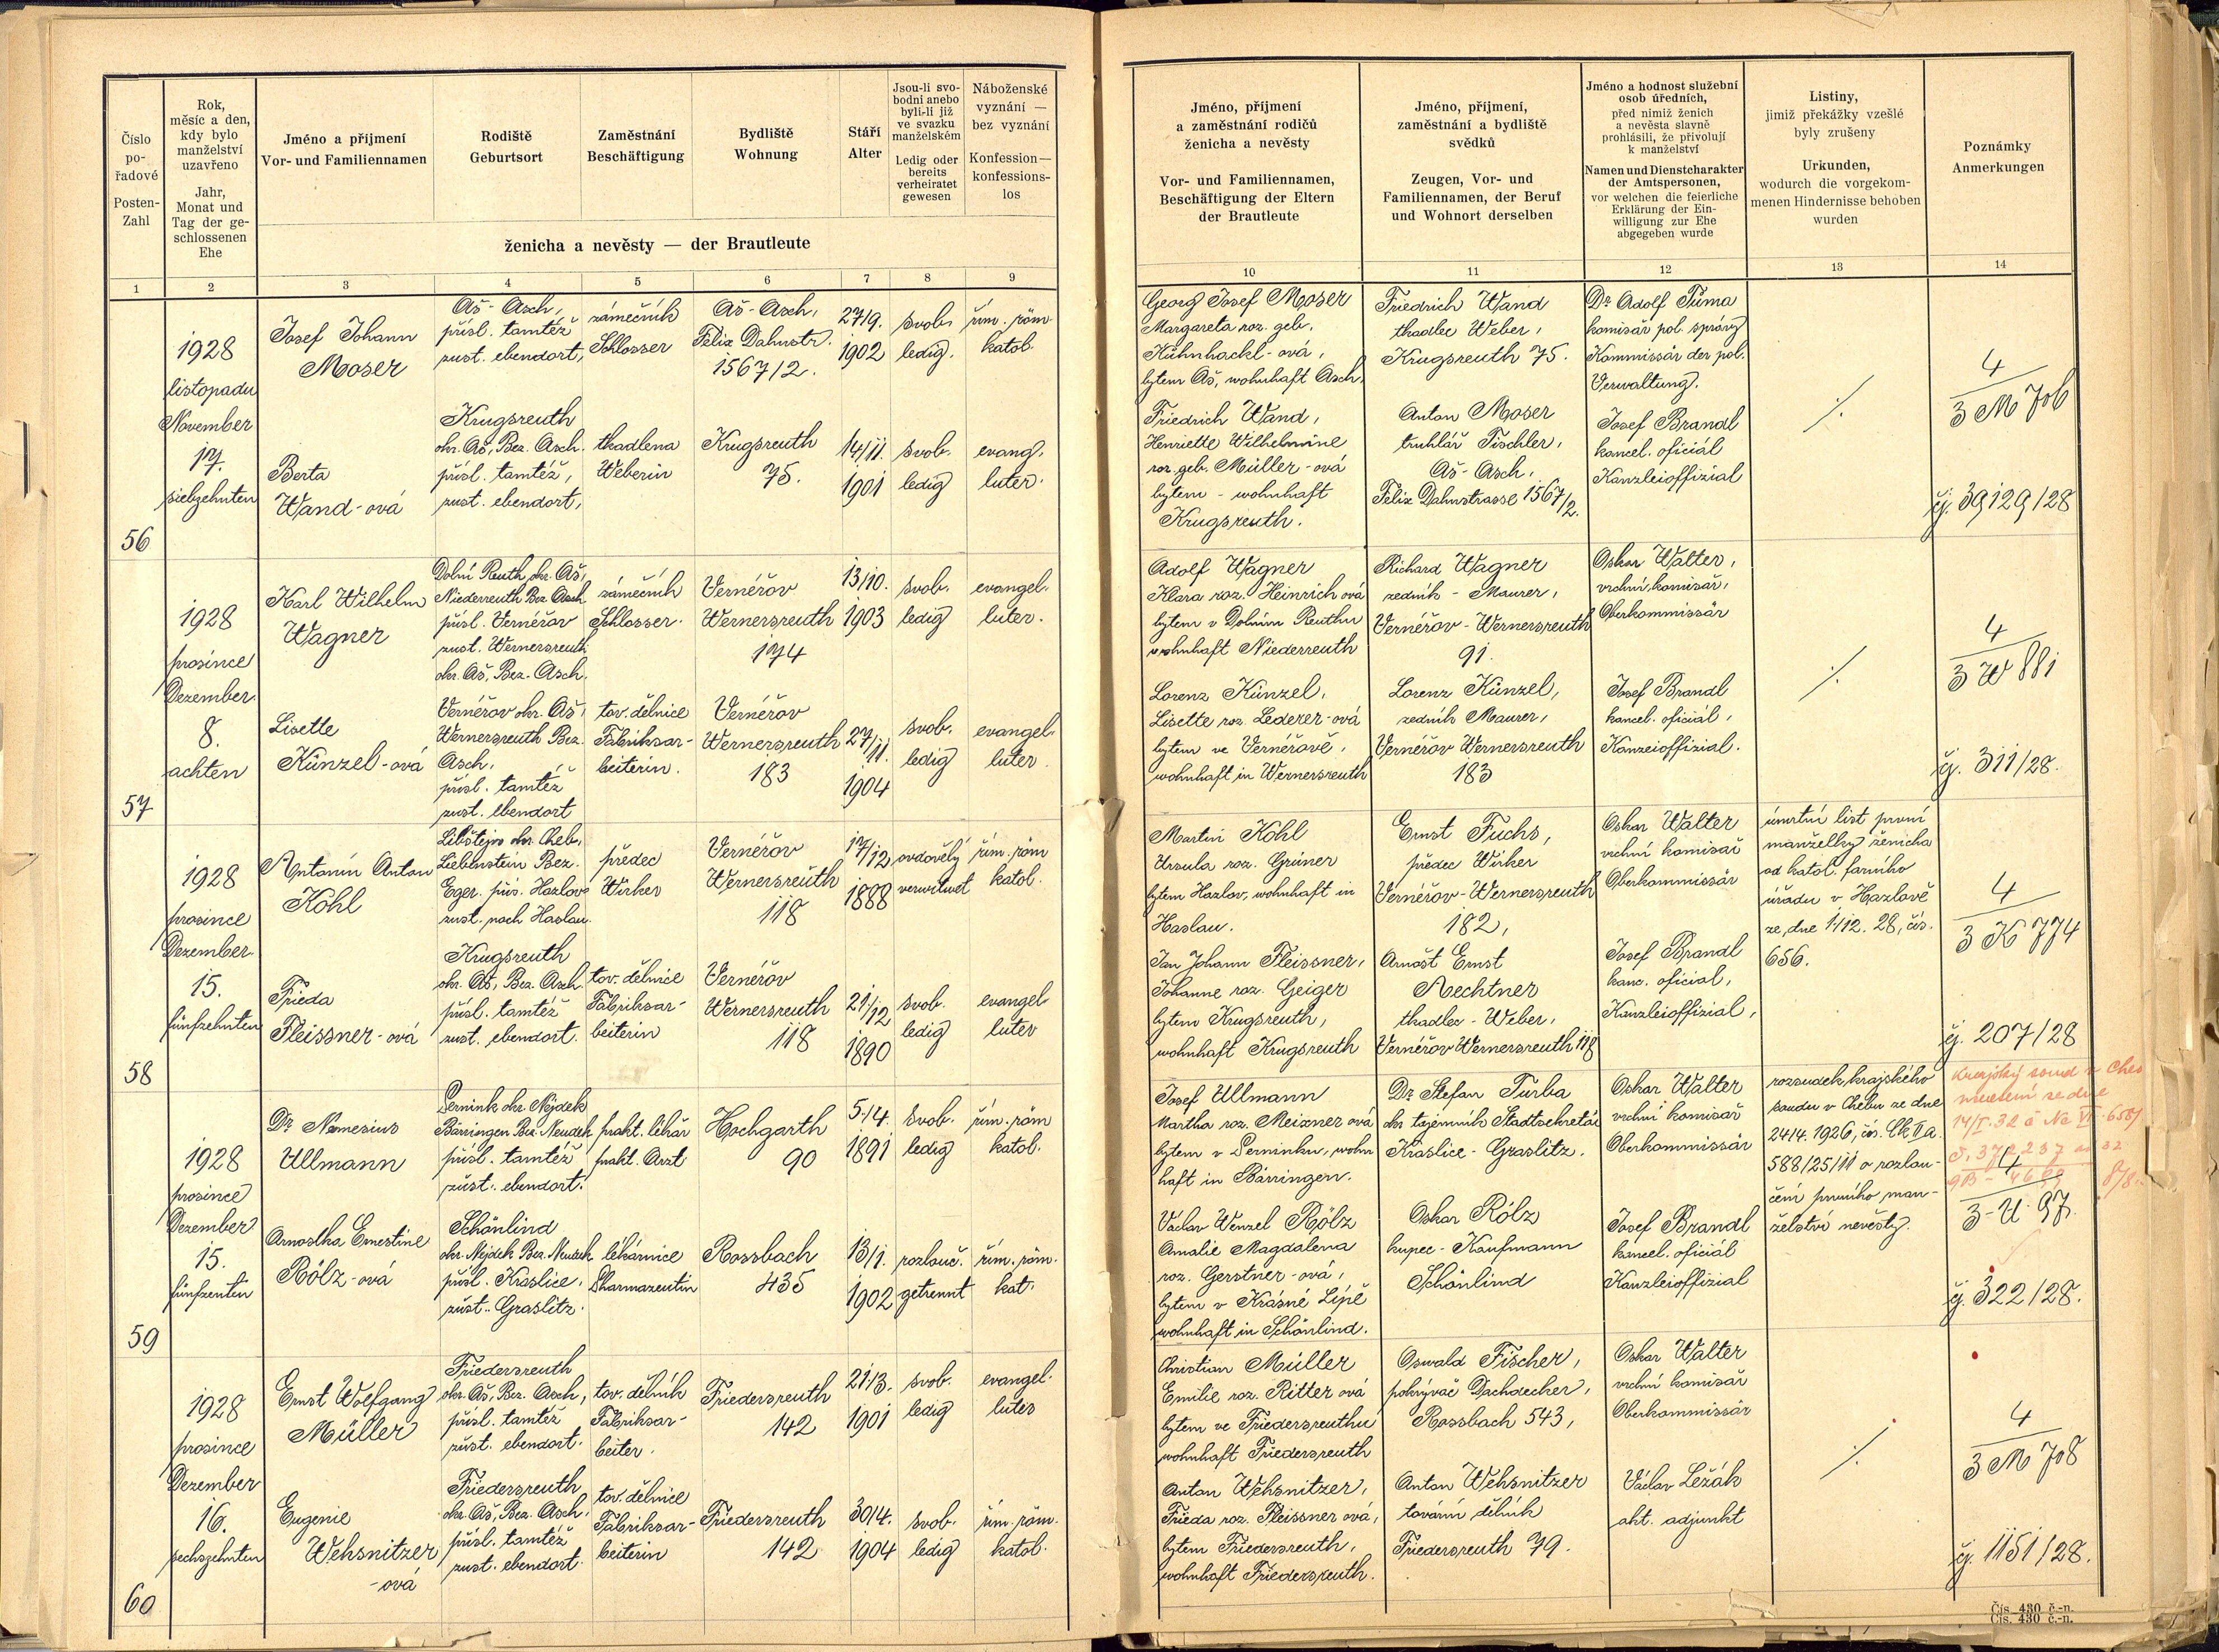 Číslo
po-
řadové
Posten-
Zahl
Rok,
měsíc a den,
kdy bylo
manželství
uzavřeno
Jahr,
Monat und
Tag der ge-
schlossenen
Ehe
Jméno a příjmení
Vor- und Familiennamen
Rodiště
Geburtsort
Zaměstnání
Beschäftigung
Bydliště
Wohnung
Stáří
Alter
Jsou-li svo-
bodni anebo
byli-li již
ve svazku
manželském
Ledig oder
bereits
verheiratet
gewesen
Náboženské
vyznání —
bez vyznání
Konfession—
konfessions-
los
ženicha a nevěsty — der Brautleute
1 2 3 4 5 6 7 8 9
1928
listopadu
November
17.
siebzehnten
56
Josef Johann
Moser
Aš - Asch,
přísl. tamtéž
zust. ebendort,
zámečník
Schlosser
Aš - Asch,
Felix Dahnstr.
1567/2.
27/9.
1902
svob.
ledig.
řím. röm.
katol.
Berta
Wand-ová
Krugsreuth
okr. Aš, Bez. Asch.
přísl. tamtéž,
zust. ebendort,
tkadlena
Weberin
Krugsreuth
75.
14/11.
1901
svob.
ledig
evang.
luter.
1928
prosince
Dezember
8.
achten
57
Karl Wilhelm
Wagner
Dolní Reuth, okr. Aš,
Niederreuth Bez. Asch
přísl. Vernéřov
zust. Wernersreuth
okr. Aš, Bez. Asch.
zámečník
Schlosser.
Vernéřov
Wernersreuth
174
13/10.
1903
svob.
ledig
evangel.
luter.
Lisette
Künzel-ová
Vernéřov okr. Aš,
Wernersreuth Bez.
Asch.
přísl. tamtéž
zust. ebendort
tov. dělnice
Fabriksar-
beiterin.
Vernéřov
Wernersreuth
183
27/11.
1904
svob.
ledig
evangel.
luter.
1928
prosince
Dezember
15.
fünfzehnten
58
Antonín Anton
Kohl
Libštejn okr. Cheb,
Liebenstein Bez.
Eger. přís. Hazlov
zust. nach Haslau.
předec
Wirker
Vernéřov
Wernersreuth
118
17/12
1888
ovdovělý
verwitwet
řím. röm
katol.
Frieda
Fleissner-ová
Krugsreuth
okr. Aš, Bez. Asch.
přísl. tamtéž
zust. ebendort.
tov. dělnice
Fabriksar-
beiterin
Vernéřov
Wernersreuth
118
21/12
1890
svob.
ledig
evangel.
luter
1928
prosince
Dezember
15.
fünfzenten
59
Dr. Nemesius
Ullmann
Pernink okr. Nejdek
Bärringen Bez. Neudek
přísl. tamtéž
zust. ebendort.
prakt. lékař
prakt. Arzt
Hochgarth
90
5./4.
1891
svob.
ledig
řím. röm
katol.
Arnoštka Ernestine
Rölz-ová
Schönlind
okr. Nejdek Bez. Neudek
přísl. Kraslice,
zust. Graslitz.
lékárnice
Pharmazeutin
Rossbach
435
13/1.
1902
rozlouč.
getrennt
řím. röm.
kat.
1928
prosince
Dezember
16.
sechszehnten
60
Ernst Wolfgang
Müller
Friedersreuth
okr. Aš, Bez. Asch,
přísl. tamtéž
zust. ebendort.
tov. dělník
Fabriksar-
beiter.
Friedersreuth
142
21/3.
1901
svob.
ledig
evangel.
luter
Eugenie
Wehsnitzer
-ová
Friedersreuth
okr. Aš, Bez. Asch.
přísl. tamtéž
zust. ebendort.
tov. dělnice
Fabriksar-
beiterin
Friedersreuth
142
30/4.
1904
svob.
ledig
řím. röm.
katol.
Jméno, příjmení
a zaměstnání rodičů
ženicha a nevěsty
Vor- und Familiennamen,
Beschäftigung der Eltern
der Brautleute
Jméno, příjmení,
zaměstnání a bydliště
svědků
Zeugen, Vor- und
Familiennamen, der Beruf
und Wohnort derselben
Jméno a hodnost služební
osob úředních,
před nimiž ženich
a nevěsta slavně
prohlásili, že přivolují
k manželství
Namen und Dienstcharakter
der Amtspersonen,
vor welchen die feierliche
Erklärung der Ein-
willigung zur Ehe
abgegeben wurde
Listiny,
jimiž překážky vzešlé
byly zrušeny
Urkunden,
wodurch die vorgekom-
menen Hindernisse behoben
wurden
Poznámky
Anmerkungen
10 11 12 13 14
Georg Josef Moser
Margareta roz. geb.
Kühnhackl-ová,
bytem Aš, wohnhaft Asch,
Friedrich Wand
tkadlec Weber,
Krugsreuth 75.
Dr. Adolf Tůma
komisař pol. správy
Kommissär der pol.
Verwaltung.
Friedrich Wand,
Henriette Wilhelmine
roz. geb. Müller-ová
bytem - wohnhaft
Krugsreuth.
Anton Moser
truhlář Tischler,
Aš - Asch,
Felix Dahnstrasse 1567/2.
Josef Brandl
kancel. oficiál
Kanzleioffizial
./.
4
3 M 706
čj. 39129/28
Adolf Wagner
Klara roz. Heinrich ová
bytem v Dolním Reuthu
wohnhaft Niederreuth
Richard Wagner
zedník - Maurer,
Vernéřov - Wernersreuth
91.
Oskar Walter,
vrchní komisař,
Oberkommissär
Lorenz Künzel,
Lisette roz. Lederer-ová
bytem ve Vernéřově,
wohnhaft in Wernersreuth
Lorenz Künzel,
zedník Maurer,
Vernéřov Wernersreuth
183
Josef Brandl
kancel. oficiál,
Kanzeioffizial.
./.
4
3 W 881
čj. 311/28.
Martin Kohl
Ursula roz. Grüner
bytem Hazlov, wohnhaft in
Haslau.
Ernst Fuchs,
předec Wirker
Vernéřov - Wernersreuth
182,
Oskar Walter
vrchní komisař
Oberkommissär
úmrtní list první
manželky ženicha
od katol. farního
úřadu v Hazlově
ze dne 1/12. 28, čís.
656.
Jan Johann Fleissner,
Johanne roz. Geiger
bytem Krugsreuth,
wohnhaft Krugsreuth
Arnošt Ernst
Aechtner
tkadlec - Weber,
Vernéřov Wernersreuth 118
Josef Brandl
kanc. oficial,
Kanzleioffizial,
4
3 K 774
čj. 207/28
Josef Ullmann
Martha roz. Meixner ová
bytem v Perninku, wohn
haft in Bärringen.
Dr. Stefan Turba
okr. tajemník Stadtsekretär
Kraslice - Graslitz.
Oskar Walter
vrchní komisař
Oberkommissär
rozsudek krajského
soudu v Chebu ze dne
24/4. 1926, čís. Ck II a.
588/25/11 o rozlou-
čení prvního man-
želství nevěsty.
Krajský soud v Cheb
ze dne
14/I. 32
4
3 - U 97.
čj. 322/28.
Václav Wenzel Rölz
Amalie Magdalena
roz. Gerstner-ová,
bytem v Krásné Lípě
wohnhaft in Schönlind.
Oskar Rölz
kupec - Kaufmann
Schönlind
Josef Brandl
kancel. oficiál
Kanzleioffizial
Christian Müller
Emilie roz. Ritter ová
bytem ve Friedersreuthu
wohnhaft Friedersreuth
Oswald Fischer,
pokrývač Dachdecker,
Rossbach 543,
Oskar Walter
vrchní komisař
Oberkommissär
Anton Wehsnitzer,
Frieda roz. Fleissner ová,
bytem Friedersreuth,
wohnhaft Friedersreuth.
Anton Wehsnitzer
tovární dělník
Friedersreuth 79.
Václav Ležák
akt. adjunkt
./.
4
3 M 708
čj. 1151/28.
Čís. 430 č.-n.
Čís. 430 č.-n.